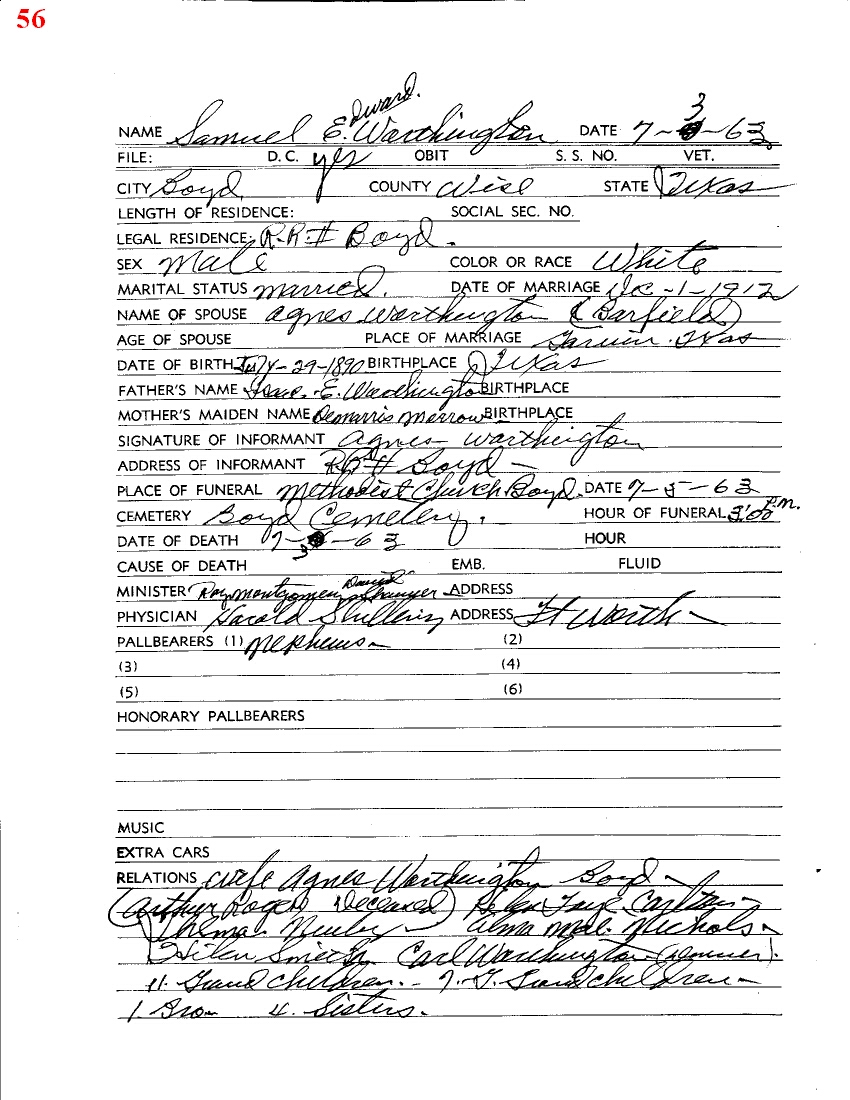 56
Edward.
NAME Samuel E. Worthington DATE 7-3-63
FILE: D.C. yes OBIT S.S. NO. VET.
CITY Boyd COUNTY Wise STATE Texas
LENGTH OF RESIDENCE: SOCIAL SEC. NO.
LEGAL RESIDENCE: R.R.# Boyd.
SEX Male COLOR OR RACE White
MARITAL STATUS married. DATE OF MARRIAGE Dec-1-1912
NAME OF SPOUSE Agnes Worthington (Barfield)
AGE OF SPOUSE PLACE OF MARRIAGE Texas
DATE OF BIRTH July-29-1890 BIRTHPLACE Texas
FATHER'S NAME E. Worthington BIRTHPLACE
MOTHER'S MAIDEN NAME Demarris Morrow BIRTHPLACE
SIGNATURE OF INFORMANT Agnes Worthington
ADDRESS OF INFORMANT RR# Boyd-
PLACE OF FUNERAL Methodist Church Boyd. DATE 7-5-63
CEMETERY Boyd Cemetery. HOUR OF FUNERAL 3:00 P.m.
DATE OF DEATH 7-3-63 HOUR
CAUSE OF DEATH EMB. FLUID
MINISTER Ray Montgomery David ADDRESS
PHYSICIAN Harold ADDRESS Ft Worth-
PALLBEARERS (1) Nephews- (2)
(3) (4)
(5) (6)
HONORARY PALLBEARERS
MUSIC
EXTRA CARS
RELATIONS wife Agnes Worthington Boyd-
(Arthur Roger Deceased) Helen Faye Carlton-
Thelma Newby- Alma Mae Nichols-
Smith Carl Worthington
11. Grand children.- 7. G. Grand children-
1. Bro- 4. Sisters.